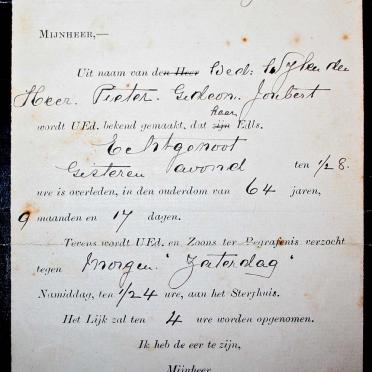 MIJNHEER,—
Uit naam van den Heer Wed. Wylen den
Heer. Pieter. Gedeon. Joubert
wordt UEd. bekend gemaakt, dat zijn haar Edls.
Echtgenoot
Gisteren avond ten 1/2 8.
ure is overleden, in den ouderdom van 64 jaren,
9 maanden en 17 dagen.
Tevens wordt UEd. en Zoons ter Begrafenis verzocht
tegen Morgen "Zaterdag"
Namiddag, ten 1/2 4 ure, aan het Sterfhuis.
Het Lijk zal ten 4 ure worden opgenomen.
Ik heb de eer te zijn,
Mijnheer